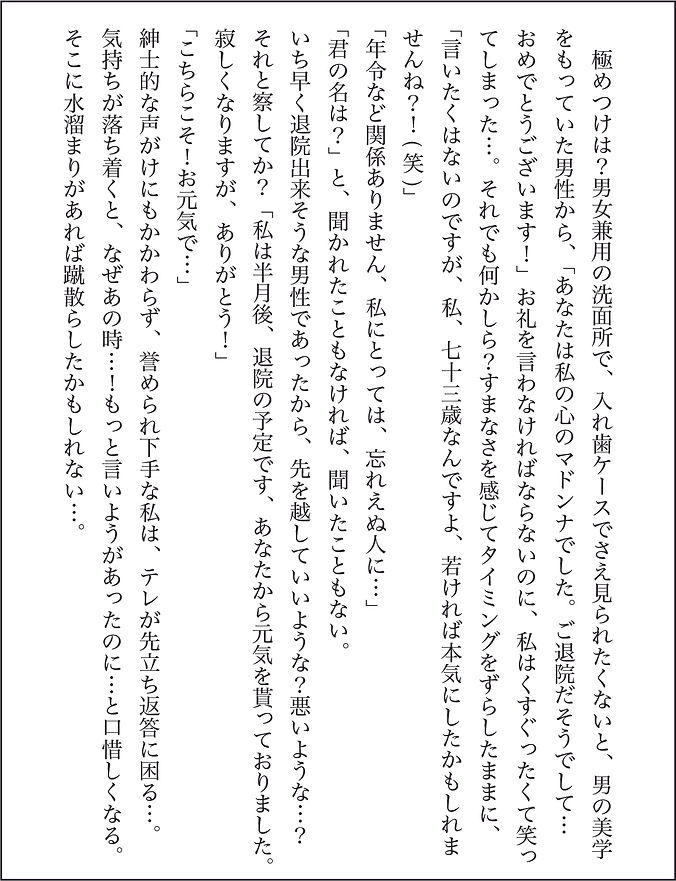 極めつけは？男女兼用の洗面所で、入れ歯ケースでさえ見られたくないと、男の美学
をもっていた男性から、「あなたは私の心のマドンナでした。ご退院だそうでして…
おめでとうございます！」お礼を言わなければならないのに、私はくすぐったくて笑っ
てしまった…。それでも何かしら？すまなさを感じてタイミングをずらしたままに、
「言いたくはないのですが、私、七十三歳なんですよ、若ければ本気にしたかもしれま
せんね？！（笑）」
「年令など関係ありません、私にとっては、忘れえぬ人に…」
「君の名は？」と、聞かれたこともなければ、聞いたこともない。
いち早く退院出来そうな男性であったから、先を越していいような？悪いような…？
それと察してか？「私は半月後、退院の予定です、あなたから元気を貰っておりました。
寂しくなりますが、ありがとう！」
「こちらこそ！お元気で…」
紳士的な声がけにもかかわらず、誉められ下手な私は、テレが先立ち返答に困る…。
気持ちが落ち着くと、なぜあの時…！もっと言いようがあったのに…と口惜しくなる。
そこに水溜まりがあれば蹴散らしたかもしれない…。